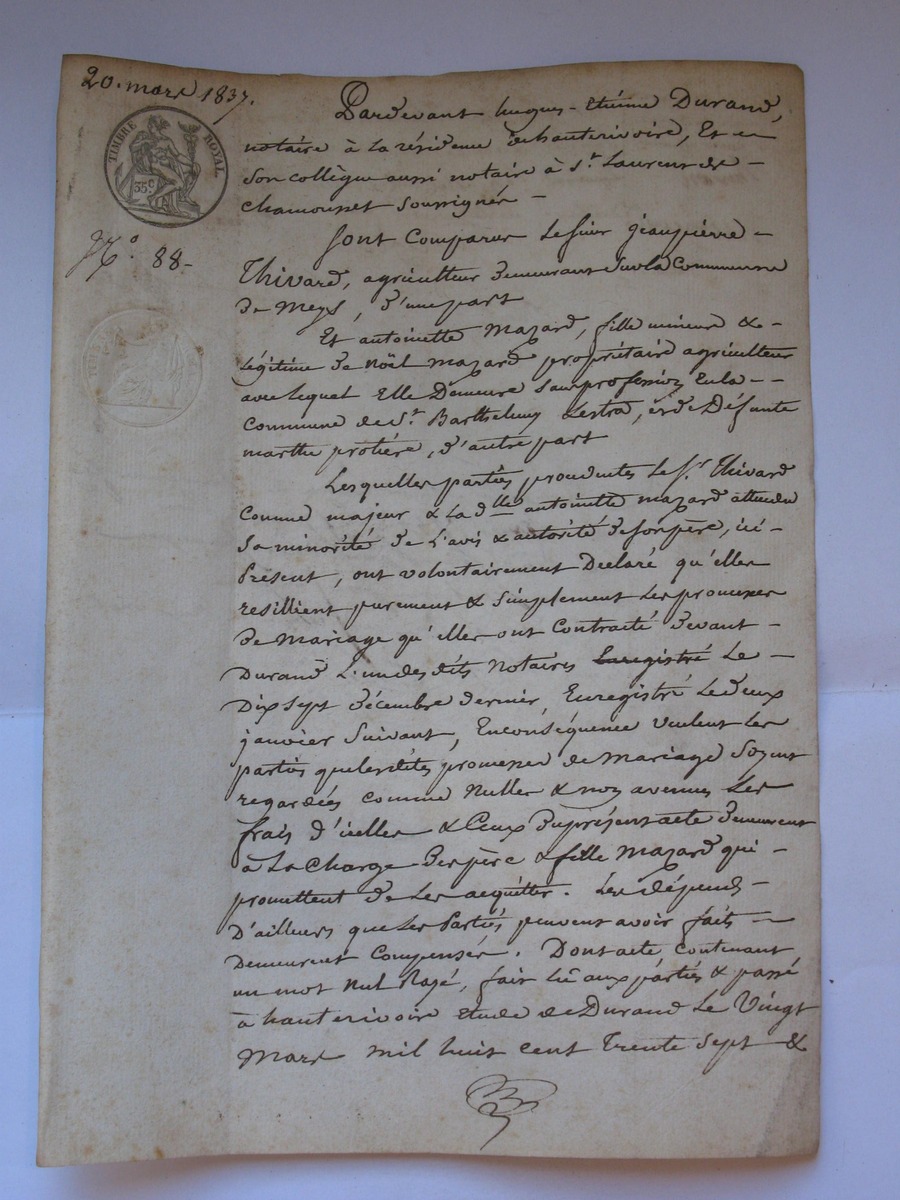 20. mars 1837.
TIMBRE ROYAL
35 c.
N.° 88-
Pardevant hugues-Etiénne Durand,
notaire à La résidence dehauterivoire, Et
Son collègue aussi notaire à S.t Laurent de -
Chamousset Soussignés -
Sont Comparus Le Sieur Jeanpiérre -
Thivard, agriculteur demeurant Sur la Commune
de Meys, d'une part
Et antoinette Mazard, fille mineure & -
Légitime de Noël Mazard propriétaire agriculteur
avec lequel Elle Demeure Sans profession En la - -
Commune de S.t Barthelemy Lestra, & de Défunte
marthe protiére, d'autre part
Lesquelles partiés procedantes Le S.r Thivard
Comme majeur & La d.lle antoinette mazard attendu
Sa minorité de L'avis & autorité de Son père, ici -
Présent, ont volontairement Déclaré qu'elles
resilient purement & Simplement Les promesses
de Mariage qu'elles ont Contracté devant -
Durand L'un des dits Notaires Enregistré Le -
Dix Sept décembre dernier, Enregistré Le deux
janvier Suivant, En conséquence veulent Les
partiés que les dites promesses de Mariage Soyent
regardées comme Nulles & non avenues Les
frais d'icelles & Ceux Du présent acte demeurent
à La Charge des père & fille Mazard qui -
promettent de Les acquitter. Les dépens -
D'ailleurs que Les Partiés peuvent avoir faits -
Demeurent Compensés. Dont acte, contenant
un mot Nul Rayé, fait Lû aux partiés & passé
à hauterivoire Etude de Durand Le Vingt
Mars mil huit cent Trente Sept &